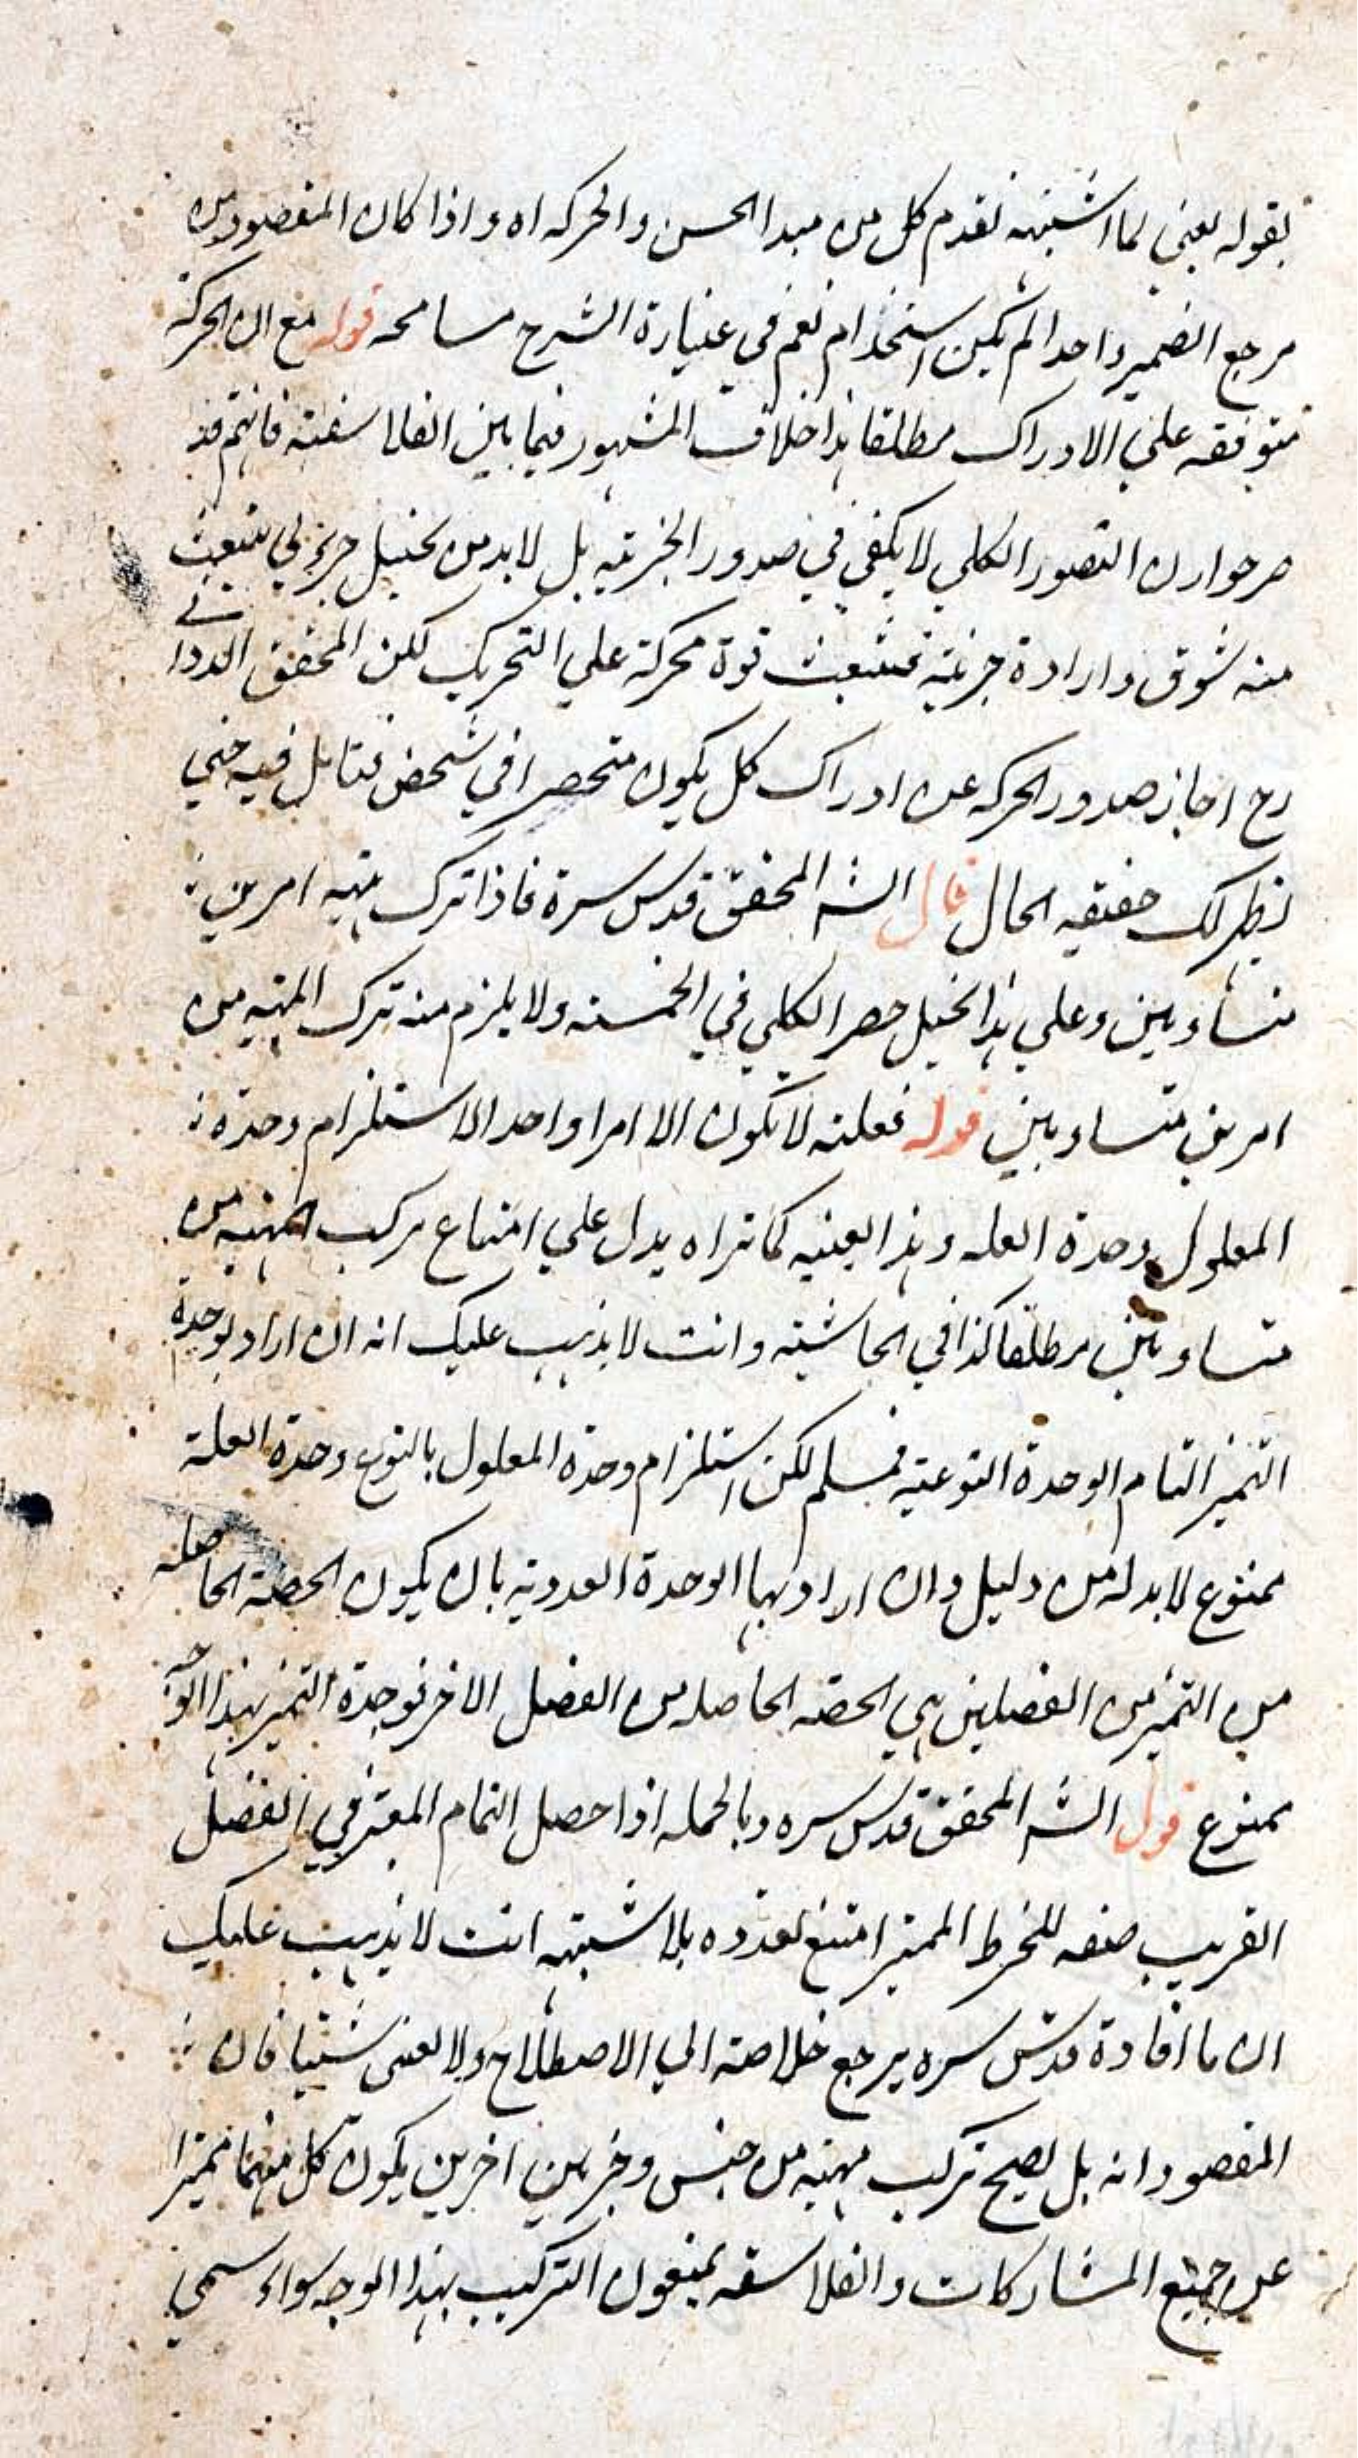 بقوله يعني لما اشتبه تقدم كل من مبدا الحس والحركه اه واذا كان المقصود من
مرجع الضمير واحدا لم يكن استخدام نعم في عبارة الشرح مسامحه قوله مع ان الحركة
متوقفه علي الادراك مطلقا هذا خلاف المشهور فيما بين الفلاسفة فانهم قد
صرحوا ان التصور الكلي لا يكفي في صدور الجزئيه بل لا بد من تخيل جزئي ينبعث
منه شوق وارادة جزئية فتنبعث قوة محركة علي التحريك لكن المحقق الدواني
رح اجاز صدور الحركه عن ادراك كل يكون منحصرا في شخص فتامل فيه حتي
يظهر لك حقيقه الحال قال الشه المحقق قدس سرة فاذا تركب مهيه امرين
متساويين وعلي هذا يختل حصر الكلي في الخمسة ولا يلزم منه تركب المهيه من
امرين متساويين قوله فعلته لا تكون الا امرا واحدا لاستلزام وحدة
المعلول وحدة العله وهذا بعينه كما تراه يدل علي امتناع تركب المهيه من
متساويين مطلقا كذا في الحاشية وانت لا يذهب عليك انه ان اراد بوحدة
التميز التام الوحدة النوعية فمسلم لكن استلزام وحدة المعلول بالنوع وحدة العلة
ممنوع لا بد له من دليل وان اراد بها الوحدة العددية بان يكون الحصة الحاصله
من التميز من الفصلين هي الحصه الحاصله من الفصل الاخر فوحدة التميز بهذا الوجه
ممنوع قول الشه المحقق قدس سره وبالجمله اذا حصل التمام المعتبر في الفصل
القريب صفه للجزء المميز امتنع تعدده بلا شبهه انت لا يذهب عليك
ان ما افادة قدس سره يرجع خلاصته الي الاصطلاح ولا يغني شيئا فان
المقصود انه بل يصح تركب مهيه من جنس وجزئين اخرين يكون كل منهما مميزا
عن جميع المشاركات والفلاسفه يمنعون التركيب بهذا الوجه سواء سمي